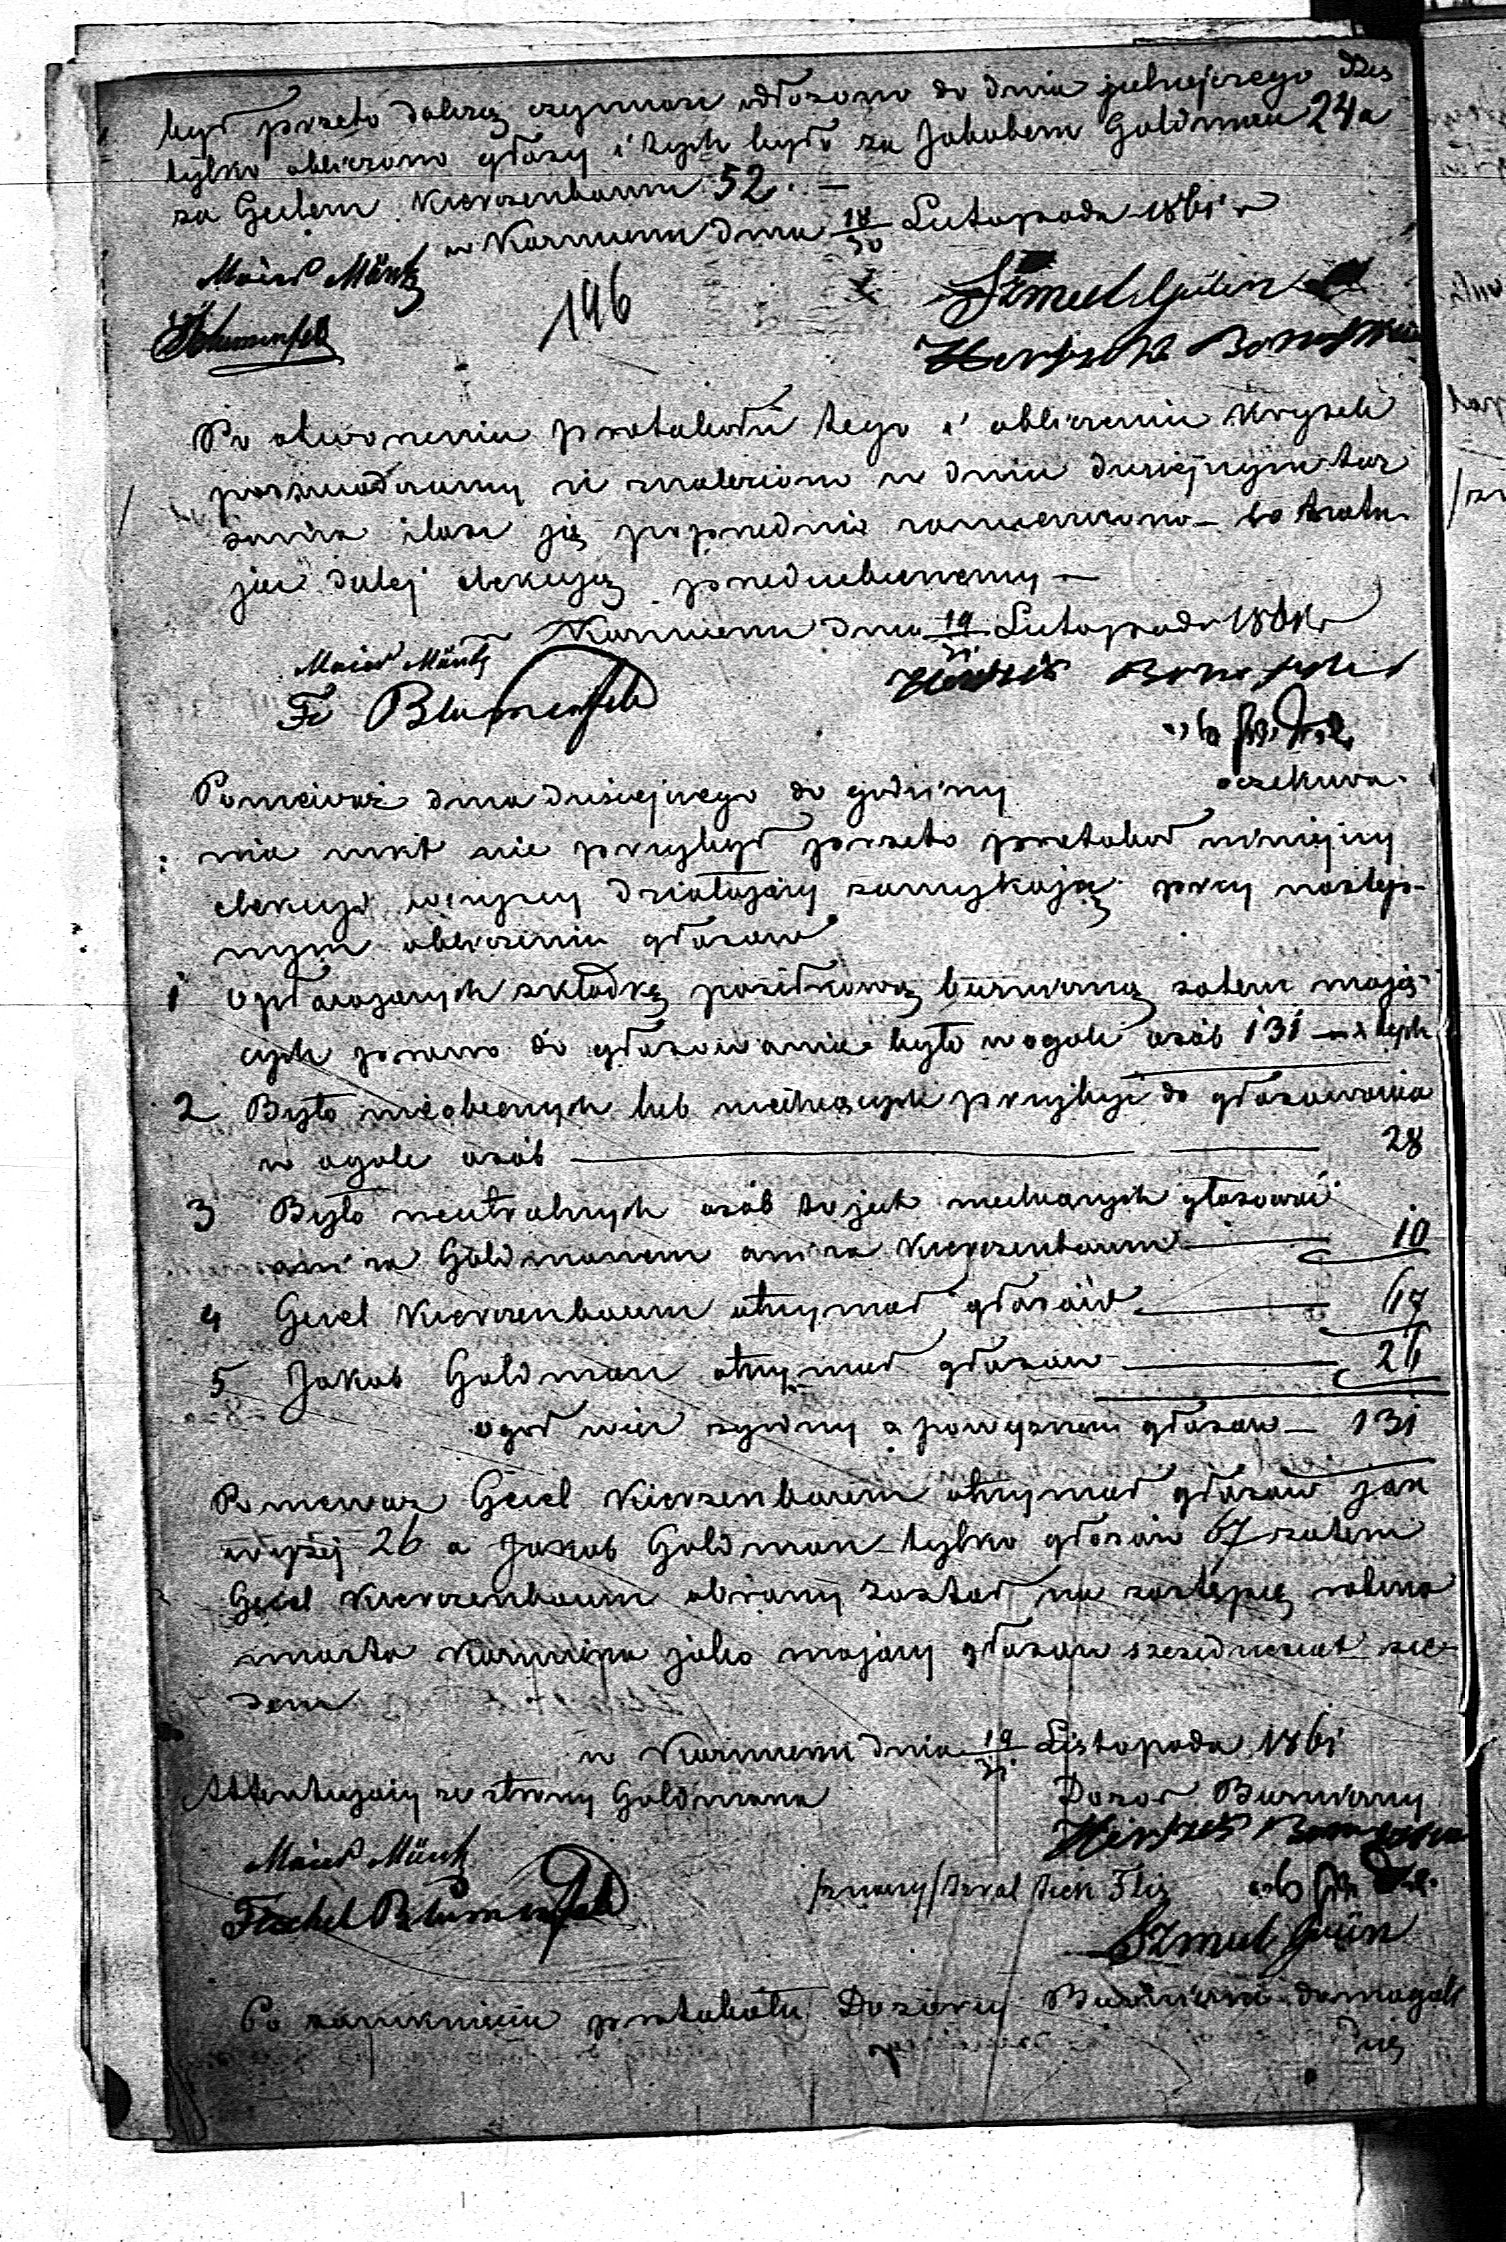 był przeto dalszą czynność odłożono do dnia jutrzejszego
tylko obliczono głosy i tych było za Jakobem Goldman 24 a
za Geclem Kierszenbaum 52. —
w Kazimierzu dnia 18/30 Listopada 1861 r
Maier Müntz
146
Szmul Grün
Blumenfeld
Herszek
Po otworzeniu protokołu tego i obliczeniu Krysek
poświadczamy iż znaleziono w dniu dzisiejszym taż
sama ilość ją poprzednio
jąc dalej elekcyą przedsiebierzemy —
Kazimierz dnia 19/31 Listopada 1861 r
Maier Müntz
Herszek
Fi Blumenfeld
Ponieważ dnia dzisiejszego do godziny oczekiwa-
nia nikt nie przybył przeto protokoł niniejszy
elekcyi więcej działający zamykają przy następ-
nym obliczeniu głosów
1 Opłacających składkę posiłkową bużniczną zatem mają-
cych prawo do głosowania było wogóle osób 131 — z tych
2 Było nieobecnych lub niechcących przybyć do głosowania
w ogóle osób — 28
3 Było neutralnych osób to jest niechcących głosować
ani za Goldmanem ani za Kierszenbaum — 10
4 Gecel Kierszenbaum otrzymał głosów — 67
5 Jakob Goldman otrzymał głosów — 26
ogół więc zgodny z powyższem głosów — 131
Ponieważ Gecel Kierszenbaum otrzymał głosów jak
wyżej 26 a Jakob Goldman tylko głosów 67 zatem
Gecel Kierszenbaum obrany został na zastępcę rabina
miasta Kazimierza jako mający głosów sześćdziesiąt sie-
dem
w Kazimierzu dnia 19/31 Listopada 1861
Attentujący ze strony Goldmana
Dozór Bużniczny
Maier Müntz
Herszek
/znaczy/ Izral Icek Flis
Fischel Blumenfeld
Szmul Grün
Po zamknięciu protokołu Dozoru Bużniczni domagali
się